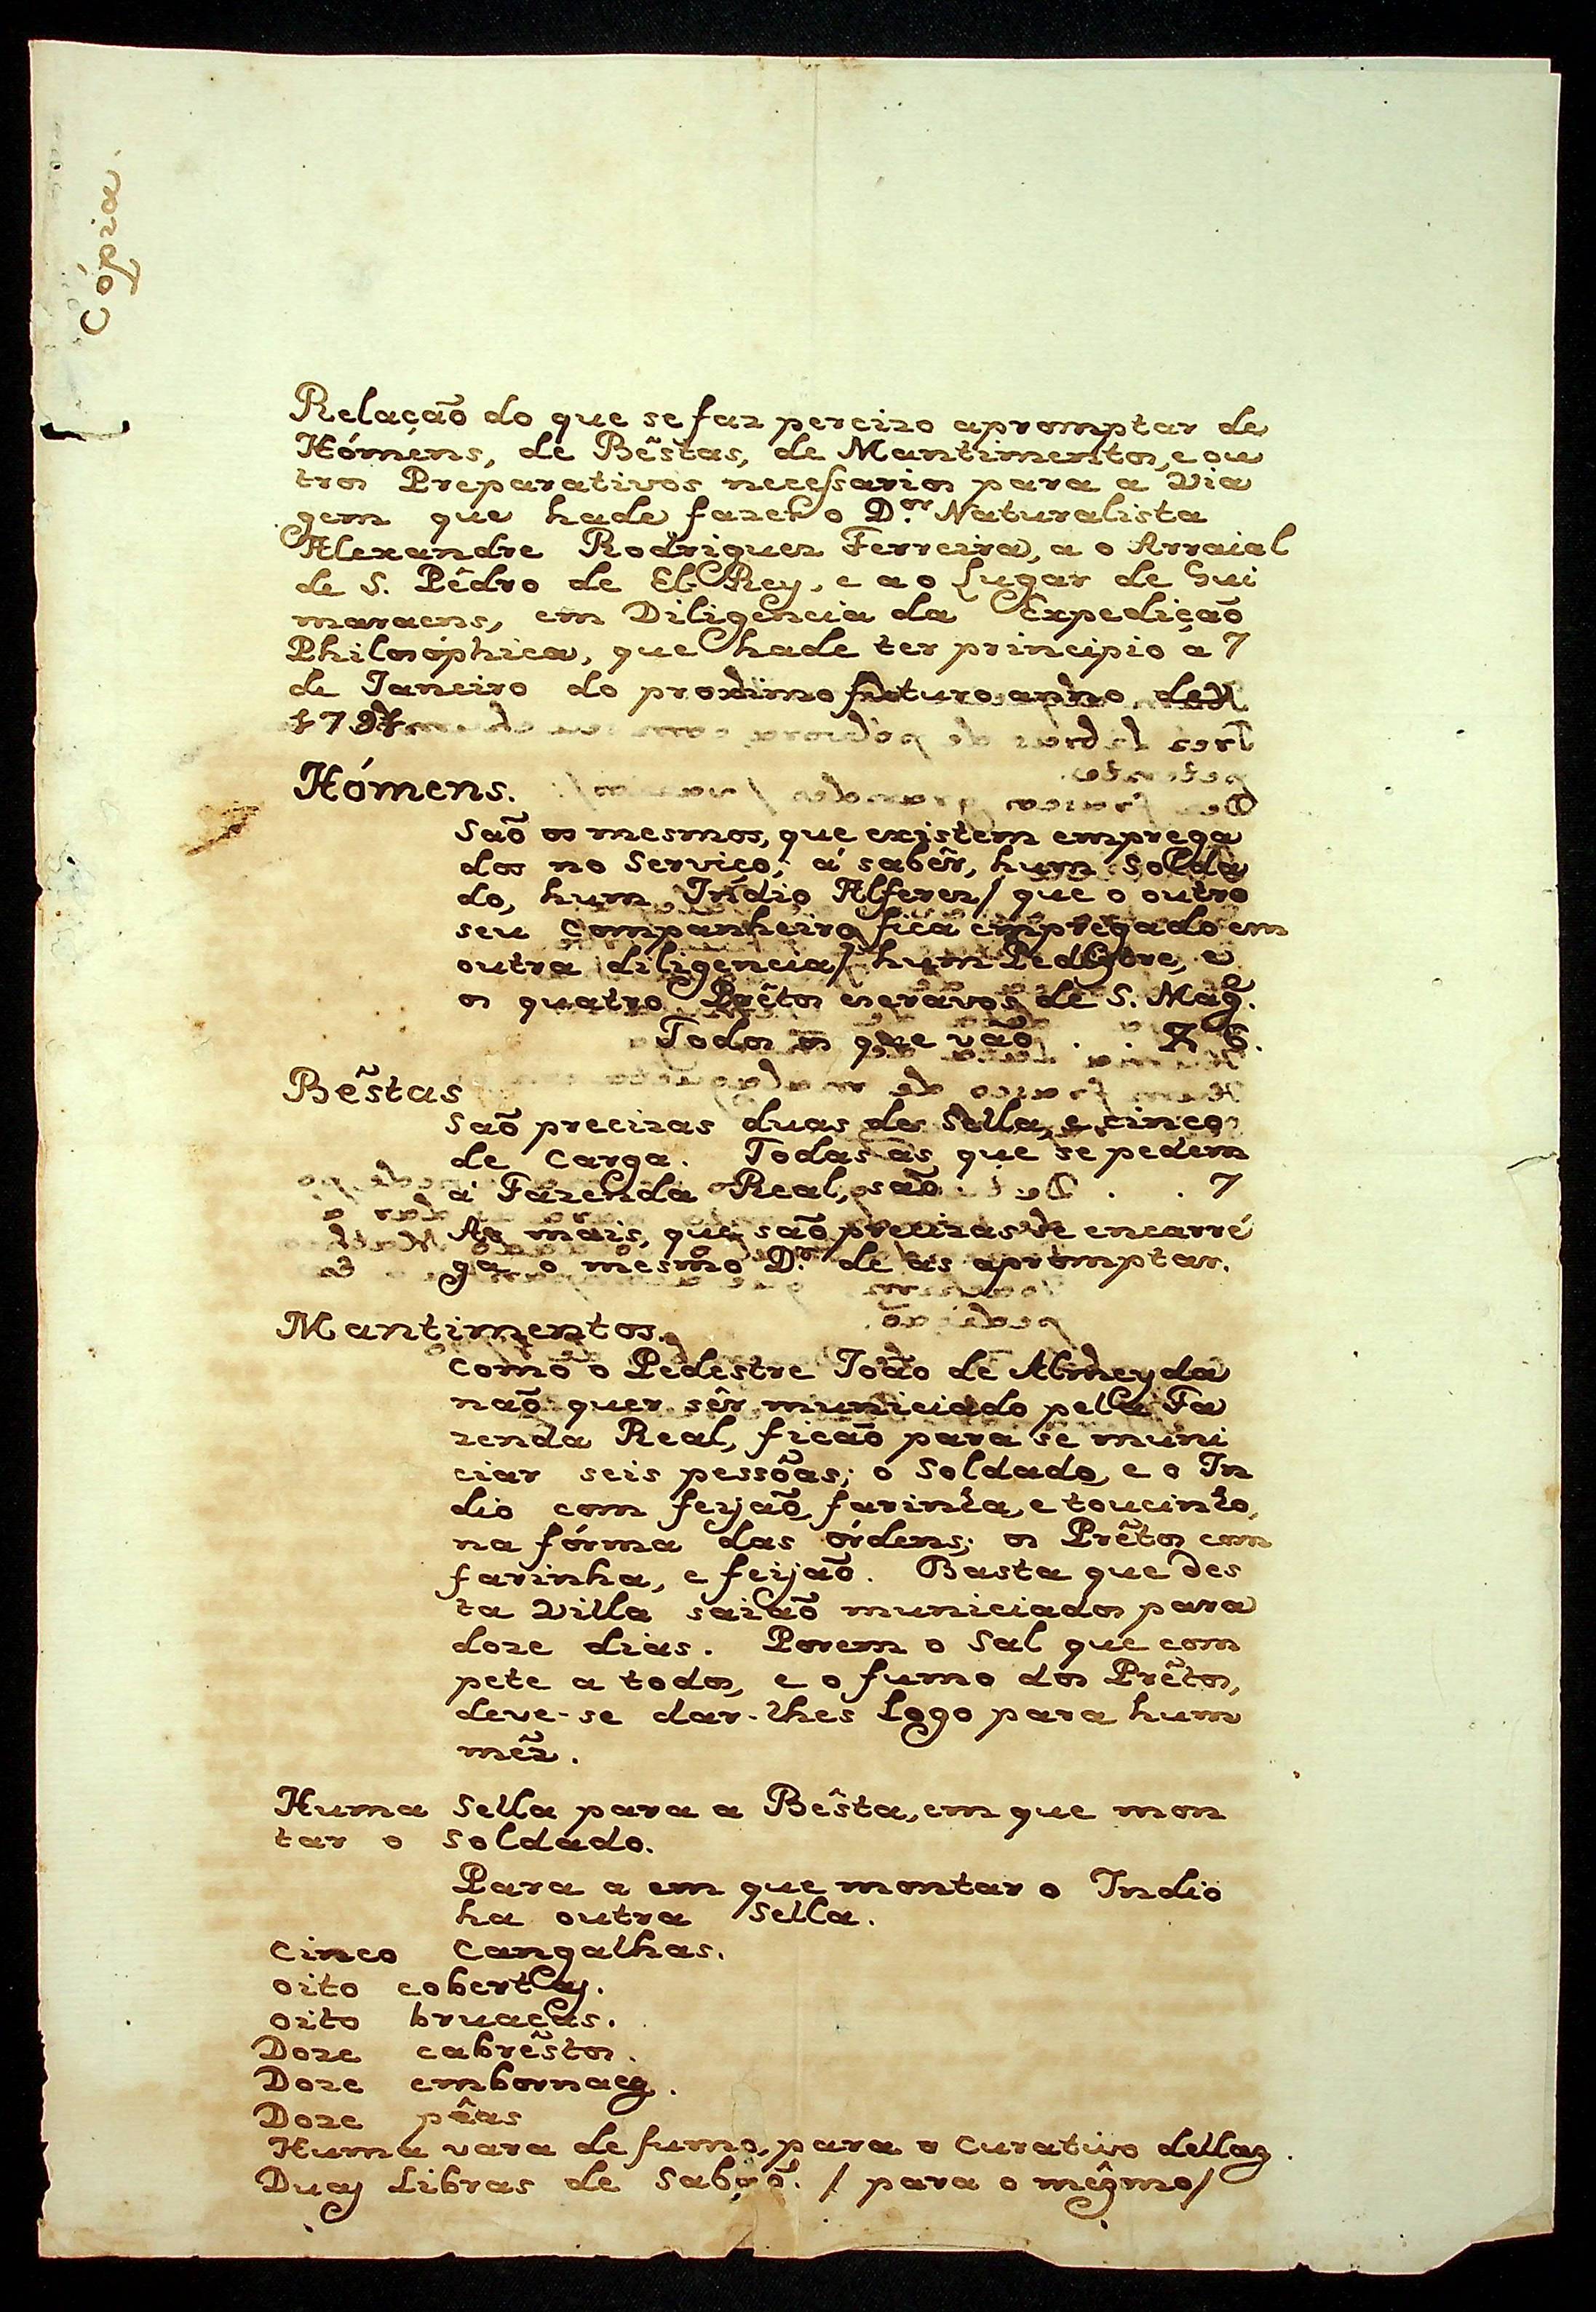 Cópia.
Relação do que se faz percizo apromptar de
Hómens, de Bẽstas, de Mantimentos, e ou
tros Preparativos necessarios para a Via
gem que hade fazer o D.or Naturalista
Alexandre Rodriguez Ferreira, a o Arraial
de S. Pêdro de El-Rey, e a o Lugar de Gui
maraens, em Diligencia da Expedição
Philosóphica, que hade ter principio a 7
de Janeiro do proximo futuro anno de
Hómens.
São os mesmos, que existem emprega
dos no Serviço; á sabêr, hum Solda
do, hum Indio Alferez / que o outro
seu Companheiro fica empregado em
outra diligencia / hum Pedestre, e
os quatro Prêtos escravos de S. Mag.e
Todos os que vão . .
Bẽstas
São precizas duas de Sella, e cinco
de Carga. Todas as que se pedem
á Fazenda Real, são . . . 7
As mais, que são precizas se encarré
ga o mesmo D.or de as apromptar.
Mantimentos.
Como o Pedestre Joaõ de Almeyda
naõ quer sêr municiado pella Fa
zenda Real, ficaõ para se muni
ciar seis pessôas; o Soldado, e o In
dio com feijaõ, farinha, e toucinho,
na fórma das órdens; os Prêtos com
farinha, e feijaõ. Basta que des
ta Villa saiaõ municiados para
doze dias. Porem o Sal que com
pete a todos, e o fumo dos Prêtos,
deve-se dar-lhes logo para hum
mêz.
Huma Sella para a Bêsta, em que mon
tar o Soldado.
Para a em que montar o Indio
ha outra Sella.
Cinco Cangalhas.
Oito cobertas.
Oito bruacas.
Doze cabrẽstos.
Doze embornaes.
Doze pêas
Huma vara de fumo, para o Curativo dellas.
Duas Libras de Sabaõ. / para o mêsmo /